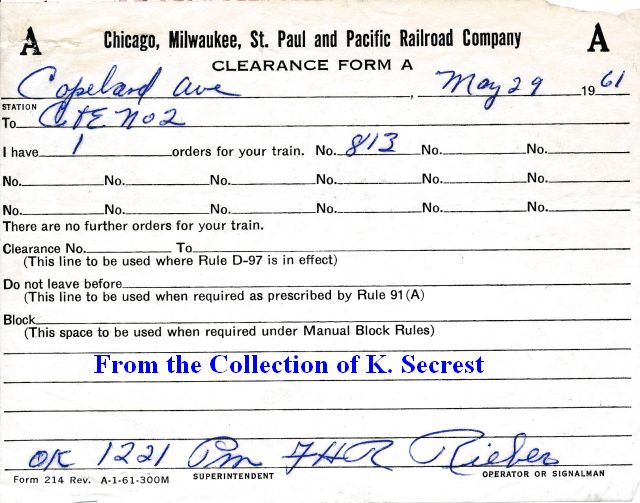 A Chicago, Milwaukee, St. Paul and Pacific Railroad Company A
CLEARANCE FORM A
Copeland Ave, May 29 1961
STATION
To C&E No 2
I have 1 orders for your train. No. 813 No. No.
No. No. No. No. No. No.
No. No. No. No. No. No.
There are no further orders for your train.
Clearance No. To
(This line to be used where Rule D-97 is in effect)
Do not leave before
(This line to be used when required as prescribed by Rule 91(A)
Block
(This space to be used when required under Manual Block Rules)
From the Collection of K. Secrest
OK 1221 Pm FHR Rieber
Form 214 Rev. A-1-61-300M SUPERINTENDENT OPERATOR OR SIGNALMAN